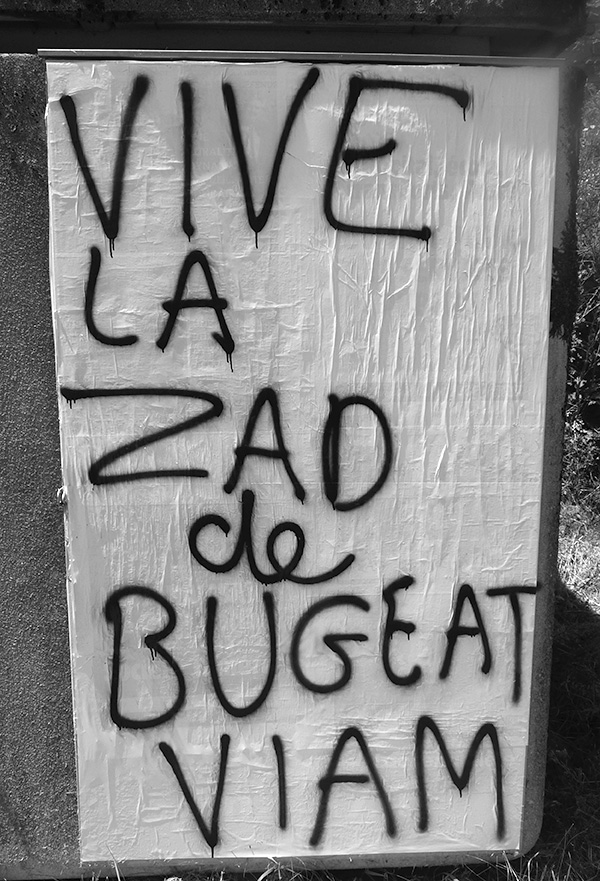 VIVE
LA
ZAD
de
BUGEAT
VIAM